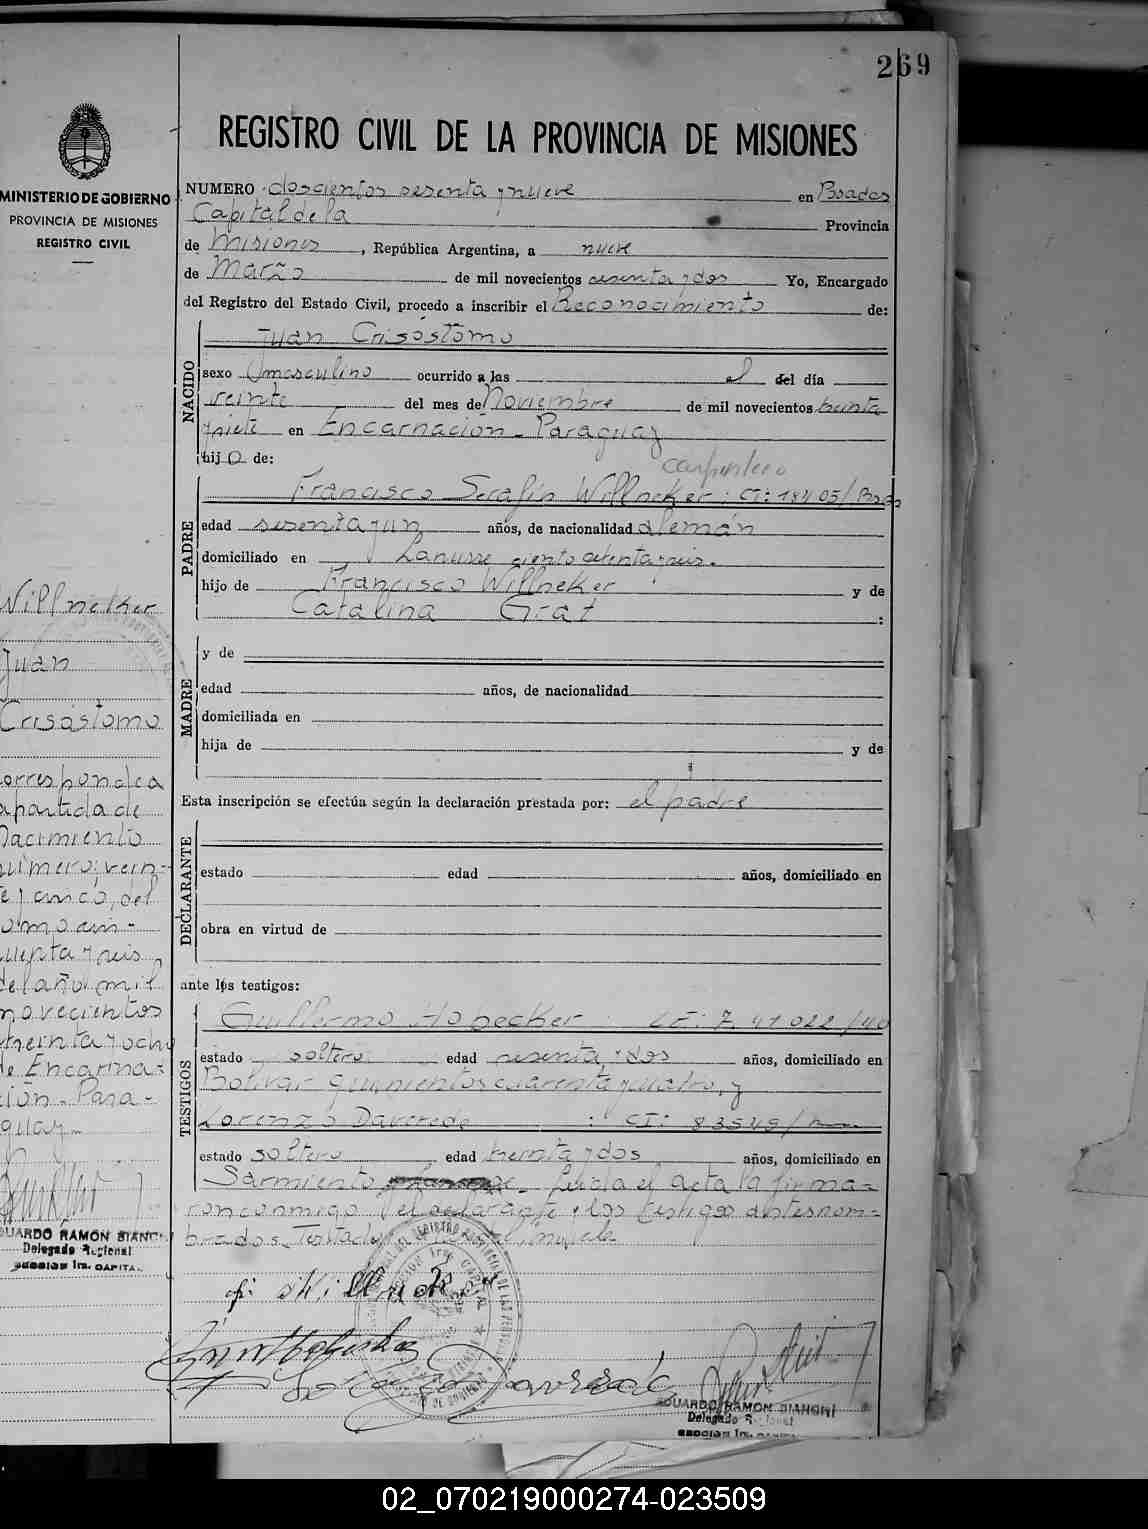 269
REGISTRO CIVIL DE LA PROVINCIA DE MISIONES
MINISTERIO DE GOBIERNO
PROVINCIA DE MISIONES
REGISTRO CIVIL
NUMERO doscientos sesenta y nueve en Posadas
Capital de la Provincia
de Misiones, República Argentina, a nueve
de Marzo de mil novecientos sesenta y dos Yo, Encargado
del Registro del Estado Civil, procedo a inscribir el Reconocimiento de:
NACIDO
Juan Crisóstomo
sexo masculino ocurrido a las el del día
veinte del mes de Noviembre de mil novecientos treinta
y siete en Encarnación - Paraguay
hijo de:
carpintero
PADRE
Francisco Serafín Willneker : CI: 18405/Psds
edad sesenta y un años, de nacionalidad alemán
domiciliado en Lanusse ciento setenta y seis.
hijo de Francisco Willneker y de
Catalina Grat :
MADRE
y de
edad años, de nacionalidad
domiciliada en
hija de y de
Esta inscripción se efectúa según la declaración prestada por: el padre
DECLARANTE
estado edad años, domiciliado en
obra en virtud de
ante los testigos:
TESTIGOS
Guillermo Hobecker LE: 7.41022/40
estado soltero edad sesenta y dos años, domiciliado en
Bolívar quinientos cuarenta y cuatro, y
Lorenzo : CI: 83549/
estado soltero edad treinta y dos años, domiciliado en
Sarmiento Leída el acta la firma-
ron conmigo el declarante y los testigos antesnom-
brados. Testado no vale
Willneker
Juan
Crisóstomo
corresponde a
la partida de
Nacimiento
número: vein-
te y cinco, del
tomo cin-
cuenta y seis,
del año mil
novecientos
treinta y ocho
de Encarna-
ción - Para-
guay -
EDUARDO RAMON BIANCHI
Delegado Regional
SECCION 1ra. CAPITAL
EDUARDO RAMON BIANCHI
Delegado Regional
SECCION 1ra. CAPITAL
02_070219000274-023509